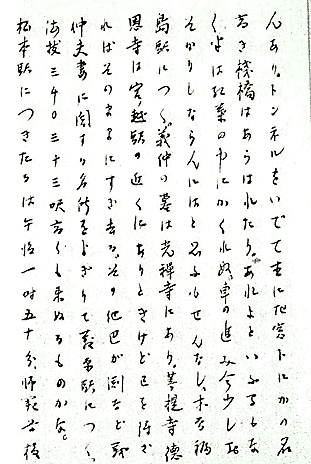 んあり、トンネルをいでて直に地窖下にかの名
高き棧橋はあらはれたり。あれよといふまもな
くはや紅葉の中にかくれぬ。車の進み今少し遅
そかりしならんにはと思ふもせんなし。木曽福
島駅につく。義仲の墓は光禅寺にあり、菩提寺徳
恩寺は宮ノ越駅の近くにありときけど日を得ざ
ればそのままにすぎ去る。その他巴が淵など義
仲夫妻に関する名所をよぎりて藪原駅につく、
海抜三千〇三十三呎、高くも来ぬるものかな。
松本駅につきたるは午后一時五十分、師範学校